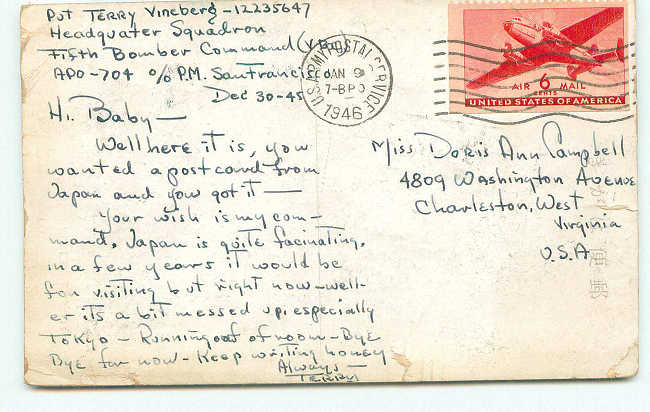 Pvt Terry Vineberg - 12235647
Headquater Squadron
Fifth Bomber Command (V.B.C.)
APO-704 c/o P.M. San Francisco
Dec 30-45
U.S. ARMY POSTAL SERVICE
JAN 9
7-BPO
1946
AIR 6 MAIL
CENTS
UNITED STATES OF AMERICA
Hi Baby -
Well here it is, you
wanted a postcard from
Japan and you got it -
Your wish is my com-
mand. Japan is quite facinating,
in a few years it would be
fun visiting but right now - well-
er its a bit messed up, especially
Tokyo - Running out of room - Bye
Bye for now - Keep writing honey
Always -
Terry
Miss Doris Ann Campbell
4809 Washington Avenue
Charleston, West
Virginia
U.S.A
便
郵